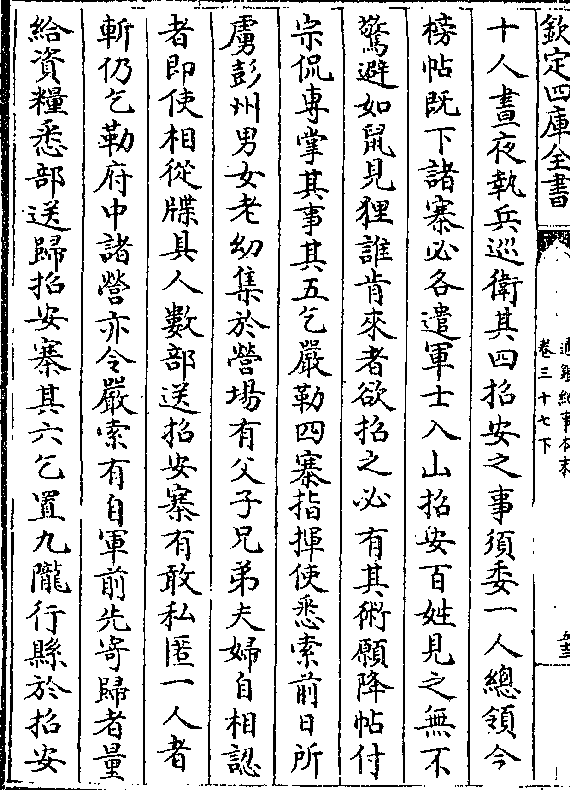 欽定四庫全書
通鑑紀事本末
卷三十七下
十人晝夜執兵巡衛其四招安之事須委一人總領今
榜帖既下諸寨必各遣軍士入山招安百姓見之無不
驚避如鼠見狸誰肯來者欲招之必有其術願降帖付
宗侃專掌其事其五乞嚴勒四寨指揮使悉索前日所
虜彭州男女老幼集於營場有父子兄弟夫婦自相認
者即使相從牒具人數部送招安寨有敢私匿一人者
斬仍乞勒府中諸營亦令嚴索有自軍前先寄歸者量
給資糧悉部送歸招安寨其六乞置九隴行縣於招安